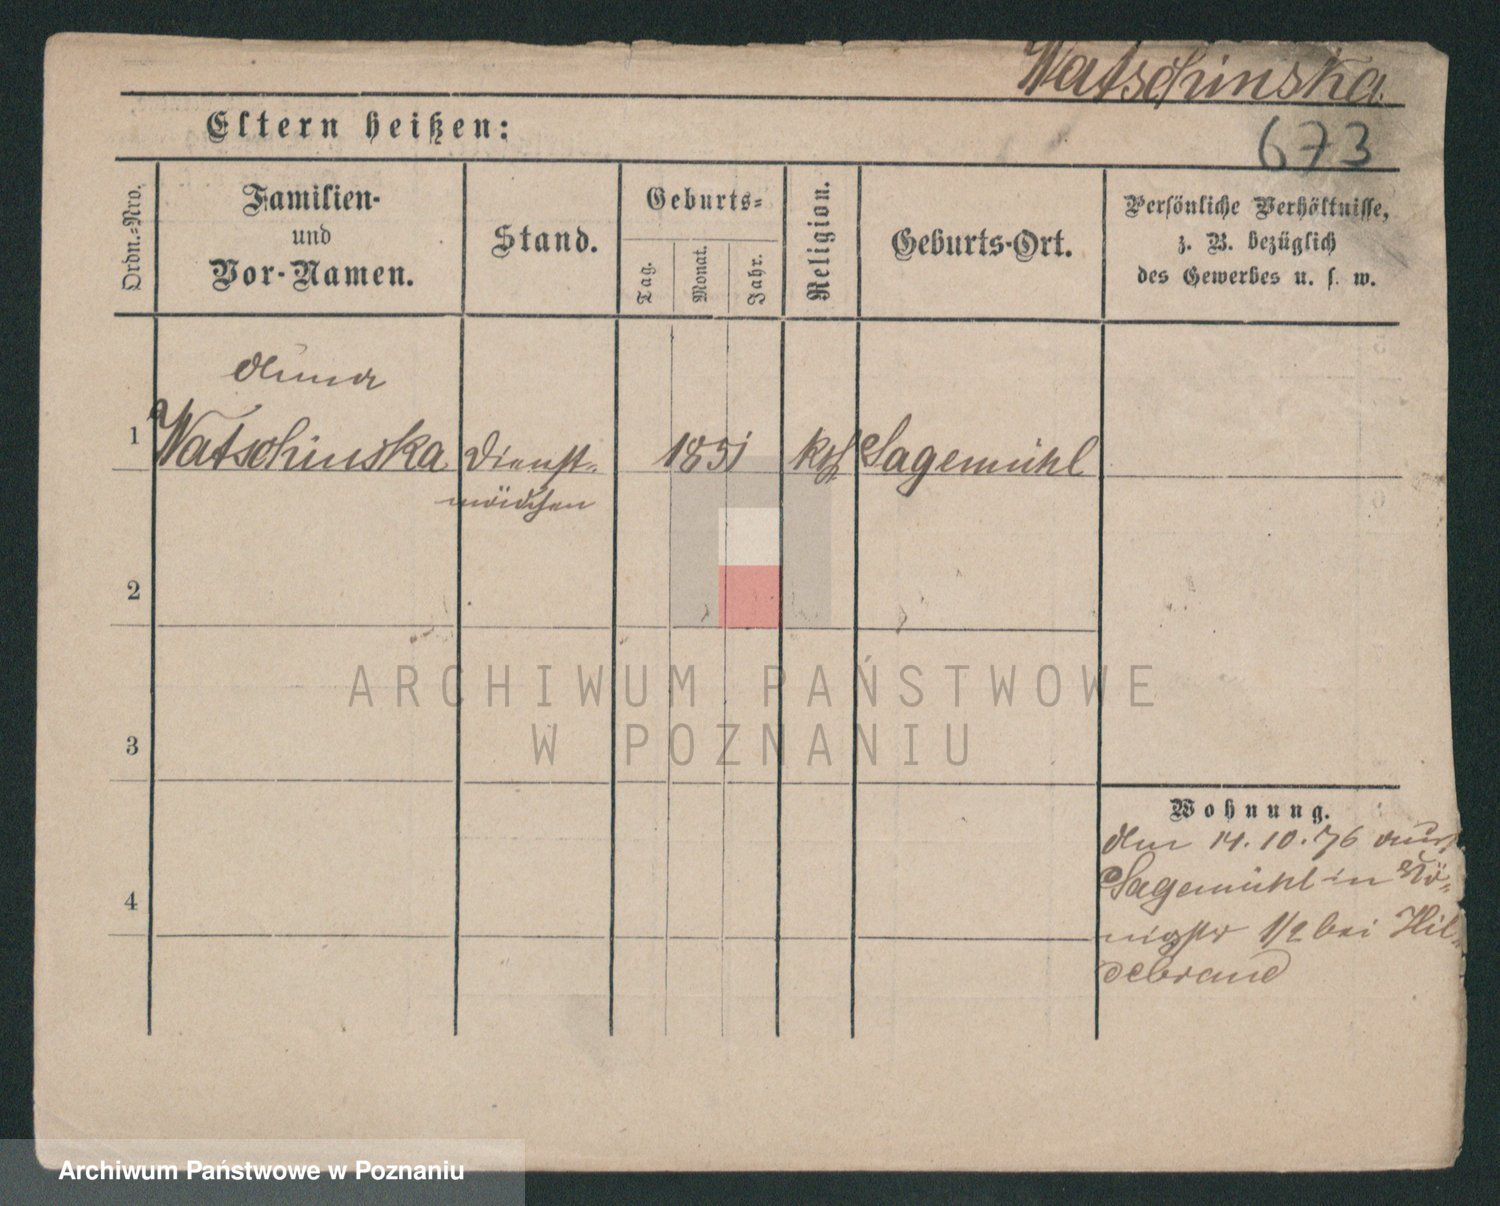 Watschinska
673
Eltern heißen:
Ordn.-Nro.
Familien-
und
Vor-Namen.
Stand.
Geburts-
Tag.
Monat.
Jahr.
Religion.
Geburts-Ort.
Persönliche Verhältnisse,
z. B. bezüglich
des Gewerbes u. s. w.
Anna
1 Watschinska Dienst- 1851 kth Sagemühl
mädchen
2
3
4
Wohnung.
Am 14.10.76 aus
Sagemühl in Kö-
nigstr 1/2 bei Hil-
debrand
ARCHIWUM PAŃSTWOWE
W POZNANIU
Archiwum Państwowe w Poznaniu